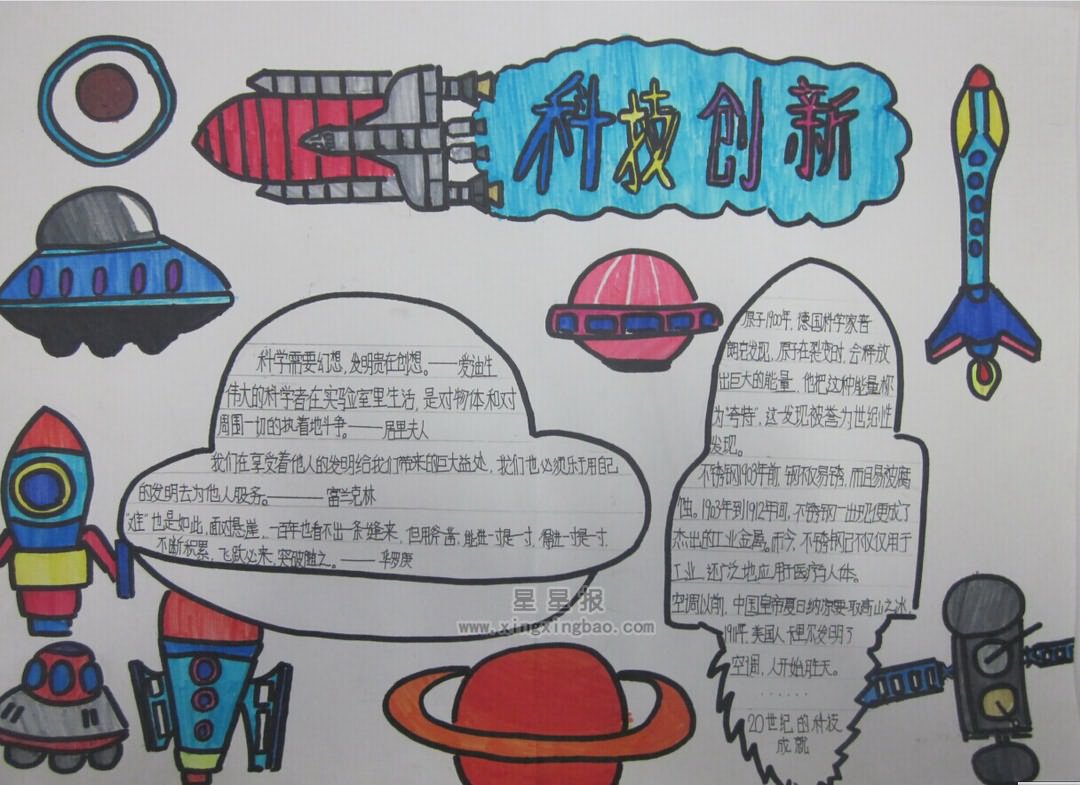 科技创新
科学需要幻想，发明贵在创想。——爱迪生
伟大的科学者在实验室里生活，是对物体和对
周围一切的执着地斗争。——居里夫人
我们在享受着他人的发明给我们带来的巨大益处，我们也必须乐于用自己
的发明去为他人服务。——富兰克林
"难"也是如此，面对悬崖，一百年也看不出一条缝来，但用斧凿，能进一寸是一寸，得进一寸是一寸，
不断积累，飞跃必来，突破随之。——华罗庚
原子1900年，德国科学家普
朗克发现，原子在裂变时，会释放
出巨大的能量，他把这种能量称
为"夸特"，这一发现被誉为世纪性
发现。
不锈钢1903年前，钢不仅易锈，而且易被腐
蚀。1903年到1912年间，不锈钢一出现便成了
杰出的工业金属。而今，不锈钢已不仅仅用于
工业，还广泛地应用于医疗与人体。
空调以前，中国皇帝夏日纳凉要取高山之冰，
1911年，美国人卡里尔发明了
空调，人开始胜天。
......
20世纪的科技
成就
星星报
www.xingxingbao.com